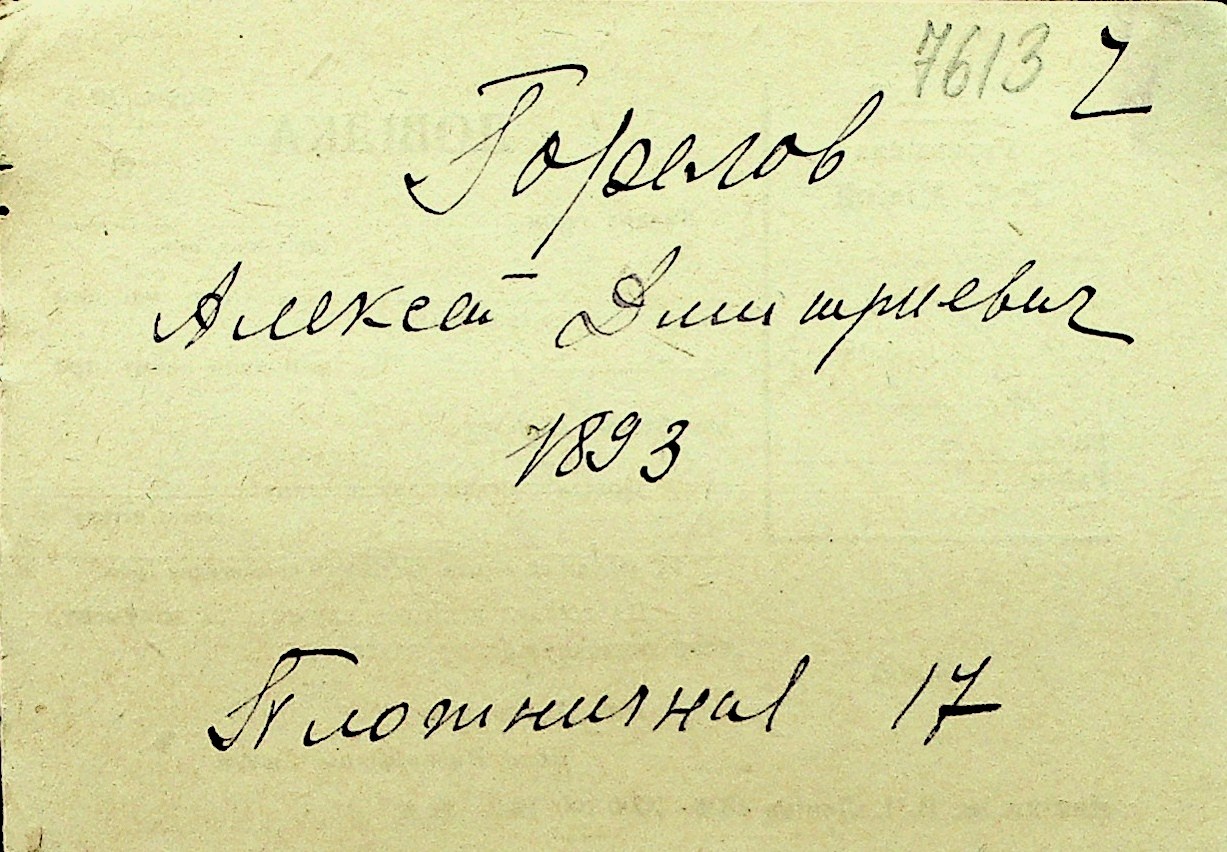 7613 ч
Горелов
Алексей Дмитриевич
1893
Плотничная 17